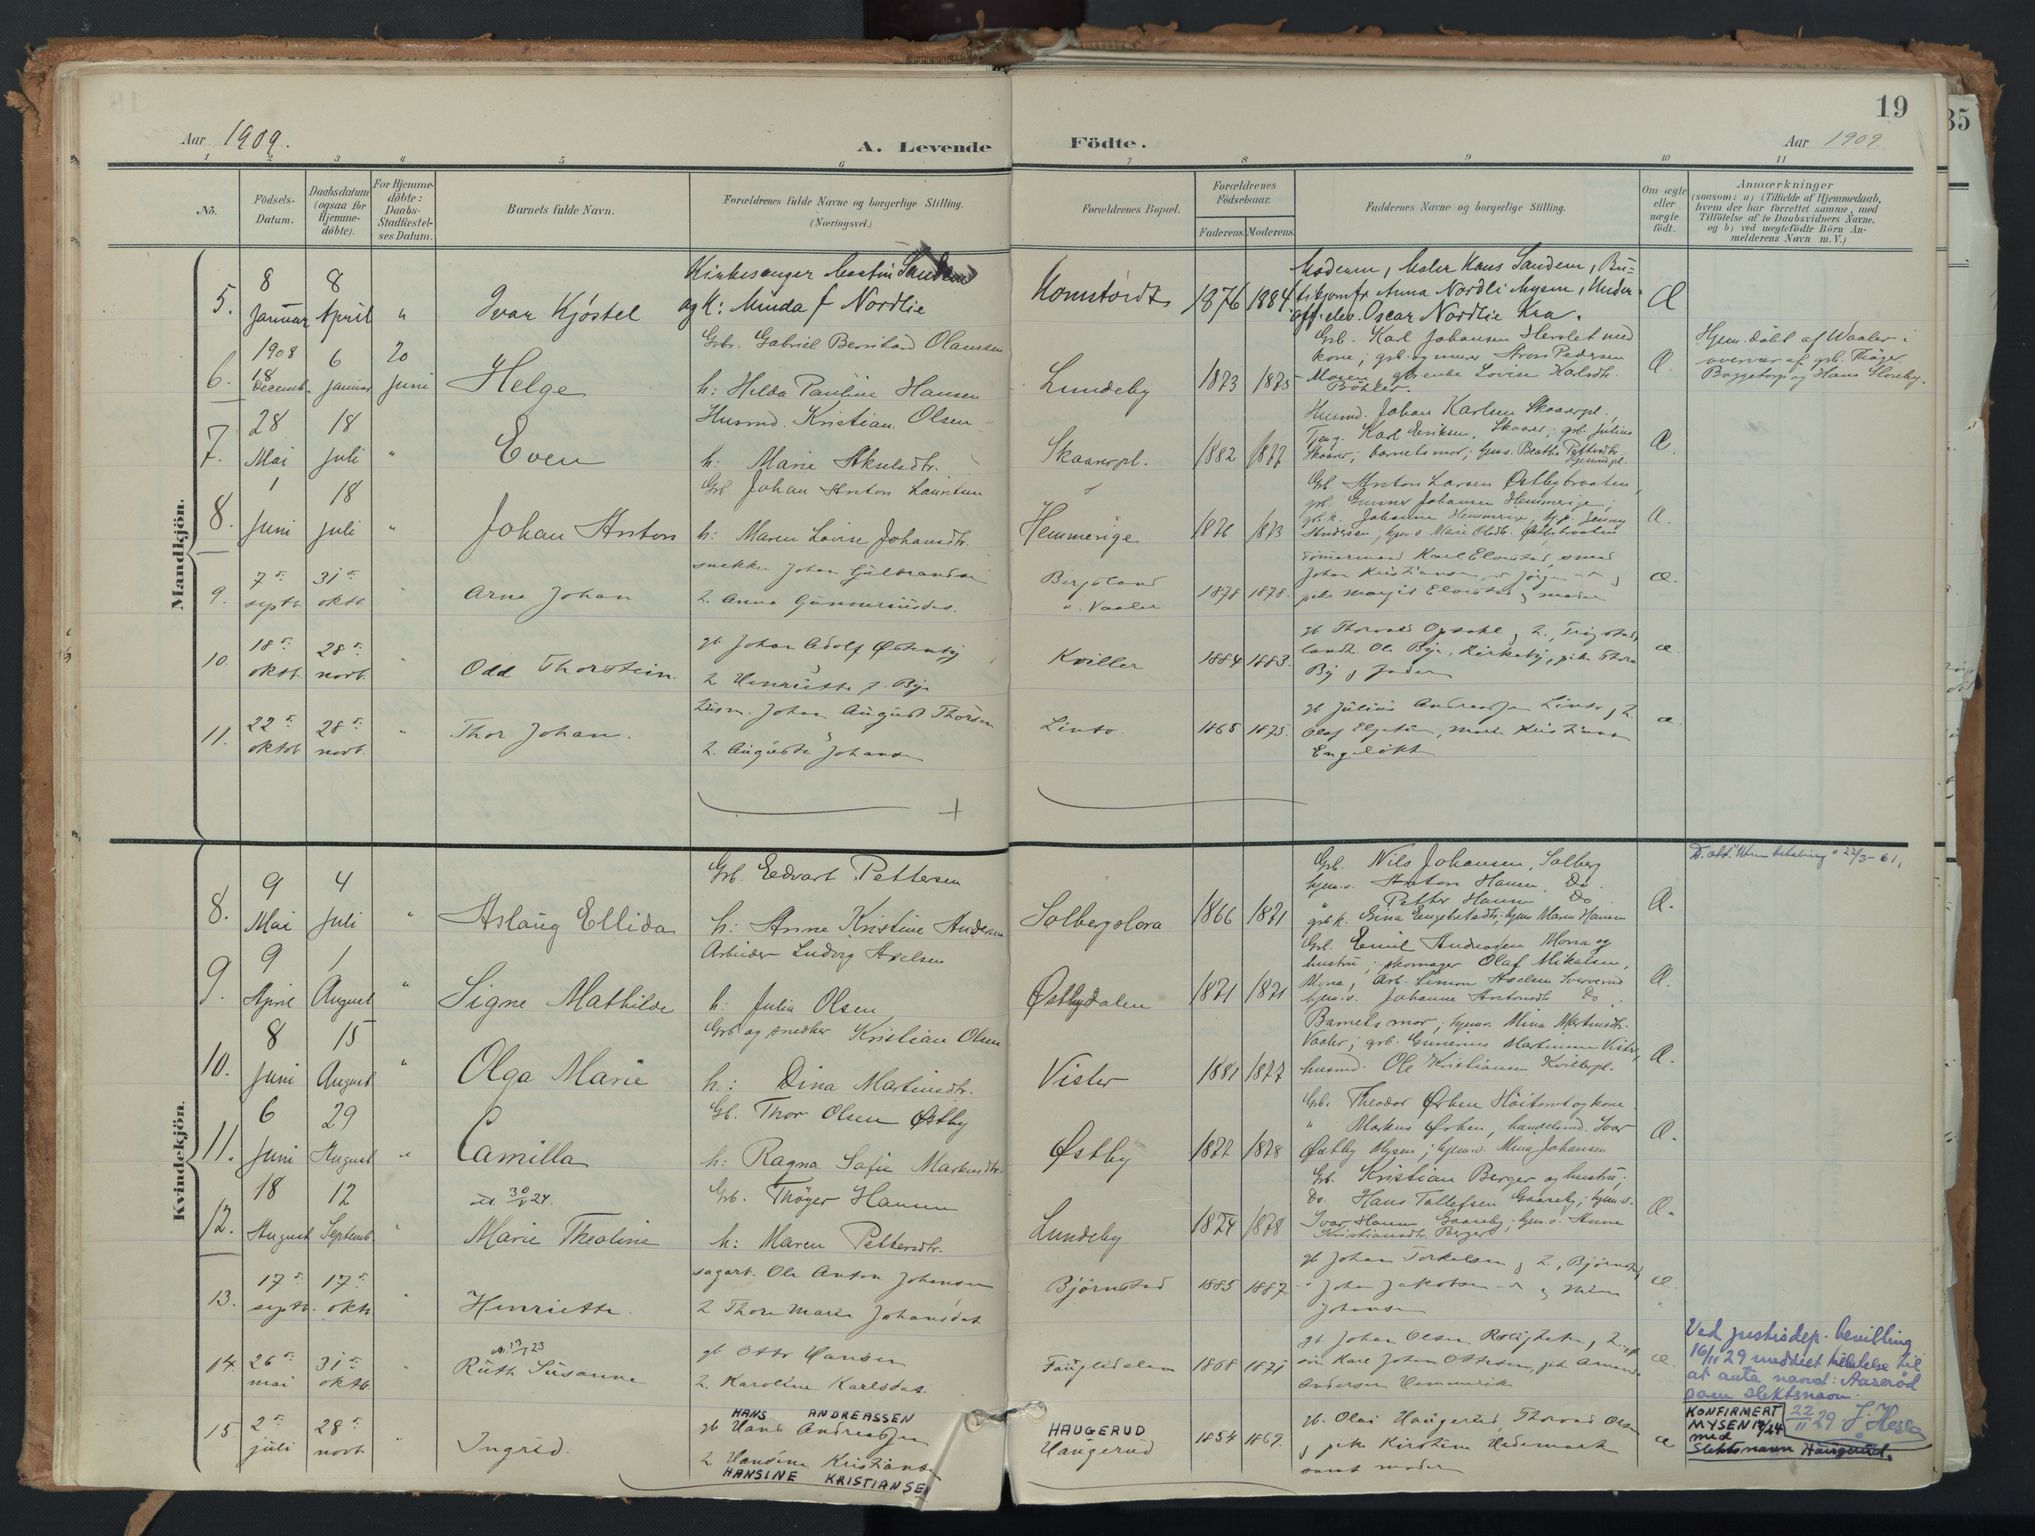 19
35
Aar 1909.
A. Levende Födte.
Aar 1909.
1 2 3 4 5 6 7 8 9 10 11
No.
Födsels-
Datum.
Daabsdatum
(ogsaa for
Hjemme-
döbte).
For Hjemme-
döbte:
Daabs-
Stadfæstel-
ses Datum.
Barnets fulde Navn.
Forældrenes fulde Navne og borgerlige Stilling.
(Næringsvei.)
Forældrenes Bopæl.
Forældrenes
Födselsaar.
Faderens. Moderens.
Faddernes Navne og borgerlige Stilling.
Om ægte
eller
uægte
födt.
Anmærkninger
(saasom: a) i Tilfælde af Hjemmedaab,
hvem der har forrettet samme, med
Tilföielse af to Daabsvidners Navne.
og b) ved uægtefödte Börn An-
melderens Navn m. V.)
Mandkjön.
5.
8
Januar
8
April
"
Ivar Kjøstel
Kirkesanger Martin Sandem
og K: Minda f Nordlie
1876 1884
Moderen, Maler Hans Sandem, Bu-
tikjomfr Anna Nordli Mysen, Under-
off. elev. Oscar Nordlie Kra.
Æ
6.
1908
18
Decemb.
6
Januar
20
Juni
Helge
Grb. Gabriel Bernhard Olaussen
h: Hilda Pauline Hansen
Lundeby
1873 1875
Grb. Karl Johansen Herslet med
kone; grb. og murer Aron Pedersen
Moren, enke Lovise Karlsdtr.
Æ
Hjem. døbt af Vaaler i
overvær af grb. Thøger
Baggetorp og Hans Sloreby.
7.
28
Mai
18
Juli
"
Even
Husmd. Kristian Olsen
h: Marie Akselsdtr.
Skaarerpl.
1882 1877
Husmd. Johan Karlsen Skaarerpl.,
Tjeng. Karl Eriksen, Skaarer; grb. Julius
Skaarer; barnets mor; hjmv. Beathe Pettersdtr
Æ.
8.
1
Juni
18
Juli
"
Johan Anton
Grb. Johan Anton Lauritsen
h: Maren Lovise Johansdtr.
Hemmerige
1876 1873
Grb Anton Larsen Østbybraaten,
grb. Gunner Johansen Hemmerige;
grb.k. Johanne Hemmerige, hjp. Jenny
Andersen; hjm.v. Marie Olsdtr. Østbybraaten
Æ.
9.
7de
septb.
31te
oktb
"
Arne Johan
snekker Johan Gulbrandsen
h. Anna Gunneriusdtr.
Bergsland
i. Vaaler
1878 1878.
Tømermand Karl Elvestad, smed
Johan Kristiansen, Jørgen
pike Margit Elvestad og moder
æ.
10.
18de
oktb.
28de
novb.
"
Odd Thorstein.
gb Johan Adolf Østenby
h. Henriette f. Bye
Kviller
1884 1883.
gb Thorvald Opsahl og h., Trøgstad,
landh. Ole Bye, Kirkeby, pike Thora
By og fader
æ.
11.
22de
oktob
28de
novb.
"
Thor Johan.
husm. Johan August Thorsen
h. Augusta Johans
Linto
1865 1875.
gb Julius Andreassen Linto og h.
Olaf Elgetun, Kristians
Engeløkk
æ.
Kvindekjön.
8.
9
Mai
4
Juli
"
Aslaug Ellida
Grb. Edvart Pettersen
h: Anne Kristine Andersen
Solbergslora
1866 1871
Grb. Nils Johansen, Solberg
hjm.v. Anton Hansen, Do.
" Petter Hansen Do
grb.k. Gina Engebretsdtr; hjmv Maren Hansen
Æ.
D.att. "Uten betaling" 22/3-61,
9.
9
April
1
August
"
Signe Mathilde
Arbeider Ludvig Axelsen
h: Julia Olsen
Østbydalen
1871 1871
Grb. Emil Andersen Mona og
hustru; skomager Olaf Mikalsen,
Mona, Arb. Simon Axelsen
hjm.v. Johanne Antonsdtr Do.
Æ.
10.
8
Juni
15
August
"
Olga Marie
Grb og snedker Kristian Olsen
h: Dina Martinsdtr.
Vister
1881 1877
Barnets mor; hjmv. Mina Martinsdtr.
Vaaler; grb. Gunerius Martinsen Vister,
husmd. Ole Kristiansen Kvillerpl.
Æ.
11.
6
Juni
29
August
"
Camilla
Gb. Thor Olsen Østby
h: Ragna Sofie Markusdtr.
Østby
1877 1878
Grb. Theodor Ørben Høitomt og kone
" Markus Ørben, handelsmd. Ivar
Østby Mysen; hjm.v. Mina Johansen
Æ.
12.
18
August
12
Septemb
"
att. 30/1 24.
Marie Thealine
Grb. Thøger Hansen
h: Maren Pettersdtr.
Lundeby
1874 1878
Gb. Kristian Berger og hustru;
Do. Hans Tollefsen Gaareby; hjm.v.
Ivar Hansen Gaareby; hjm.v. Anne
Kristiansdtr. Berger
Æ.
13.
17de
septb.
17de
oktb
"
Henriette.
sagarb. Ole Anton Johansen
h Thora Marie Johansdat
Bjørnstad
1885 1887
gb Johan Torkelsen og h., Bjørnstad
Johan Jakobsen og Mina
Johansen
æ.
14.
26de
mai
31te
oktb.
att. 13/1 23
Ruth Susanne
gb Otto Hansen
h. Karoline Karlsdat.
Fangledalen
1868 1871
gb. Johan Olsen Rolighet og h.,
Karl Johan Ottesen, pike Amanda
Andersen Hemmerik
æ.
Ved justisdep. bevilling
16/11 29 meddelt tilladelse til
at anta navnet: Aaserød
som slektsnavn.
22/11 29 J. Hesla
15
2den
juli
28de
novb.
Ingrid.
HANS ANDREASSEN
gb Hans Andreassen
h Hansine Kristians
HANSINE KRISTIANSEN
HAUGERUD
Haugerud
1854 1869.
gb. Olai Haugerud, Thorvald Olsen
og pike Kirstine Hedemark
samt moder
æ
KONFIRMERT
MYSEN 14/24
med
Slektsnavn Haugerud.